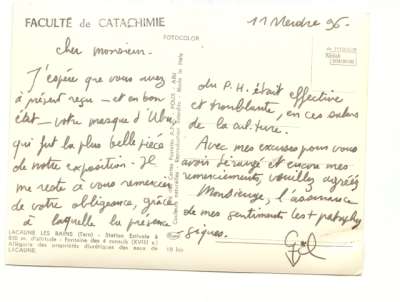 FACULTÉ de CATACHIMIE
FOTOCOLOR
11 Merdre 96.
Cher monsieur.
J'espère que vous avez
à présent reçu — et en bon
état — votre masque d'Ubu,
qui fut la plus belle pièce
de notre exposition. Il
me reste à vous remercier
de votre obligeance, grâce
à laquelle la présence
du P.H. était effective
et troublante, en ces salons
de la culture.
Avec mes excuses pour vous
avoir dérangé et encore mes
remerciements, veuillez agréer,
Monsieuye, l'assurance
de mes sentiments les + pataphy
siques.
LACAUNE LES BAINS (Tarn) - Station Estivale à
850 m. d'altitude - Fontaine des 4 canouls (XVIII s.)
Allégorie des propriétés diurétiques des eaux de
LACAUNE.